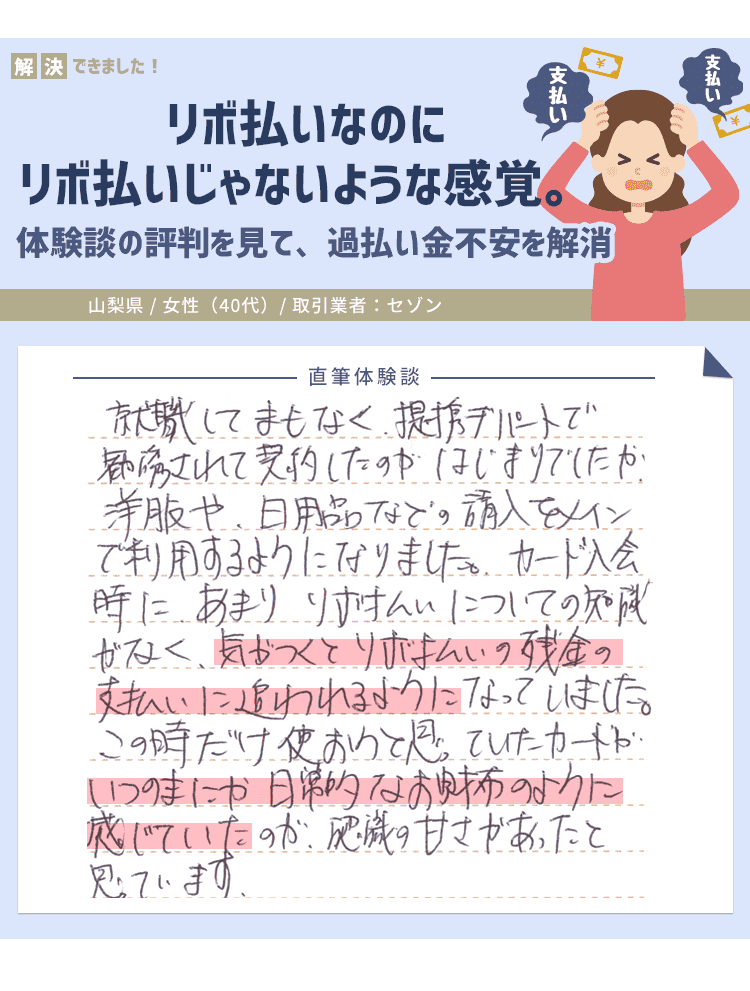 解決できました！
支払い
¥
支払い
¥
リボ払いなのに
リボ払いじゃないような感覚。
体験談の評判を見て、過払い金不安を解消
山梨県 / 女性（40代）/ 取引業者：セゾン
直筆体験談
就職してまもなく、提携デパートで
勧誘されて契約したのがはじまりでしたが、
洋服や、日用品などの購入をメイン
で利用するようになりました。カード入会
時に、あまりリボ払いについての知識
がなく、気がつくとリボ払いの残金の
支払いに追われるようになっていました。
この時だけ使おうと思っていたカードが
いつのまにか日常的なお財布のように
感じていたのが、認識の甘さがあったと
思っています。